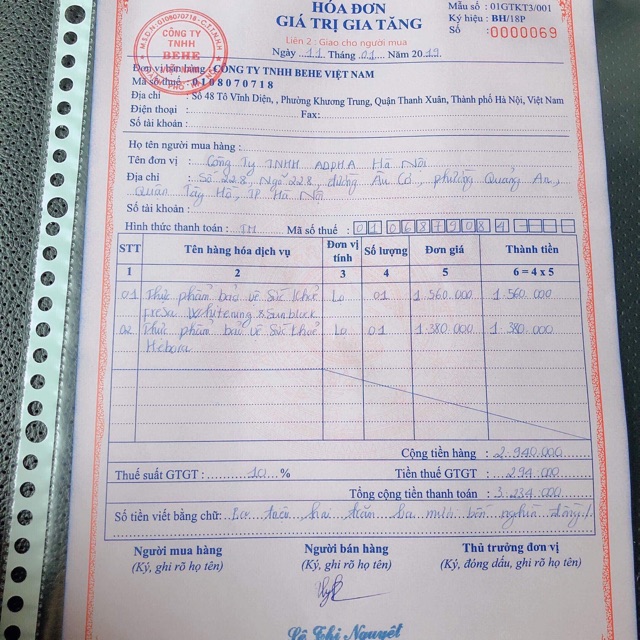 HÓA ĐƠN
GIÁ TRỊ GIA TĂNG
Liên 2 : Giao cho người mua
Ngày 11 Tháng 01 Năm 2019
Mẫu số : 01GTKT3/001
Ký hiệu : BH/18P
Số : 0000069
CÔNG TY
TNHH
BEHE
Đơn vị bán hàng : CÔNG TY TNHH BEHE VIỆT NAM
Mã số thuế : 0108070718
Địa chỉ : Số 48 Tô Vĩnh Diện, , Phường Khương Trung, Quận Thanh Xuân, Thành phố Hà Nội, Việt Nam
Điện thoại : Fax:
Số tài khoản :
Họ tên người mua hàng :
Tên đơn vị : Công Ty TNHH ADPHA Hà Nội
Địa chỉ : Số 228, Ngõ 228, đường Âu Cơ, phường Quảng An,
Quận Tây Hồ, TP Hà Nội
Số tài khoản :
Hình thức thanh toán : TM Mã số thuế : 01068479084
STT Tên hàng hóa dịch vụ Đơn vị tính Số lượng Đơn giá Thành tiền
1 2 3 4 5 6 = 4 x 5
01 Thực phẩm bảo vệ Sức khoẻ Lọ 01 1.560.000 1.560.000
Fresa Whitening & Sunblock
02 Thực phẩm bảo vệ Sức khoẻ Lọ 01 1.380.000 1.380.000
Hebora
Cộng tiền hàng : 2.940.000
Thuế suất GTGT : 10 % Tiền thuế GTGT : 294.000
Tổng cộng tiền thanh toán : 3.234.000
Số tiền viết bằng chữ: Ba triệu hai trăm ba mươi bốn nghìn đồng./.
Người mua hàng Người bán hàng Thủ trưởng đơn vị
(Ký, ghi rõ họ tên) (Ký, ghi rõ họ tên) (Ký, đóng dấu, ghi rõ họ tên)
Lê Thị Nguyệt